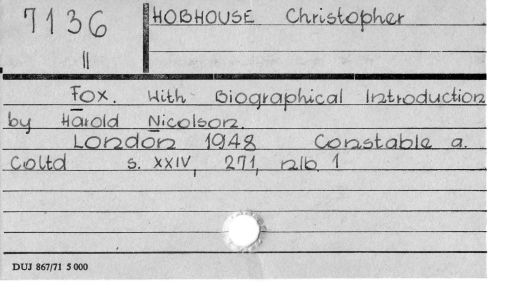 7136
II
HOBHOUSE Christopher
Fox. With Biographical Introduction
by Harold Nicolson.
London 1948 Constable a.
Coltd s. XXIV, 271, nlb. 1
DUJ 867/71 5 000